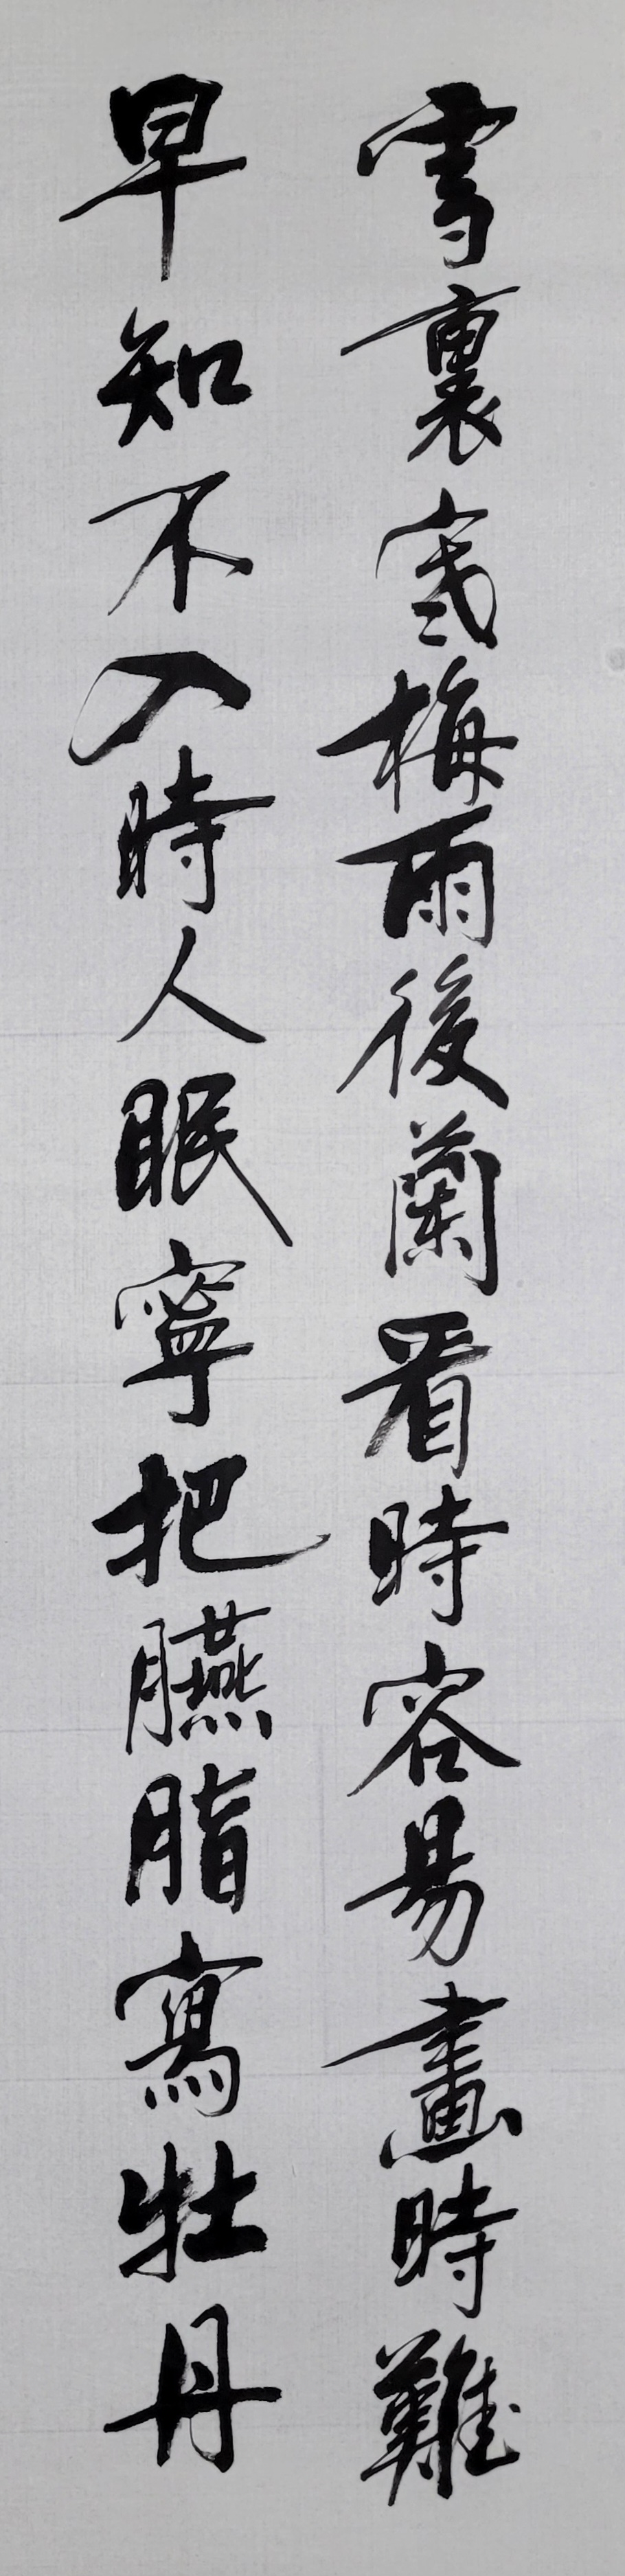 雪裏寒梅雨後蘭看時容易畫時難
早知不入時人眼寧把臙脂寫牡丹